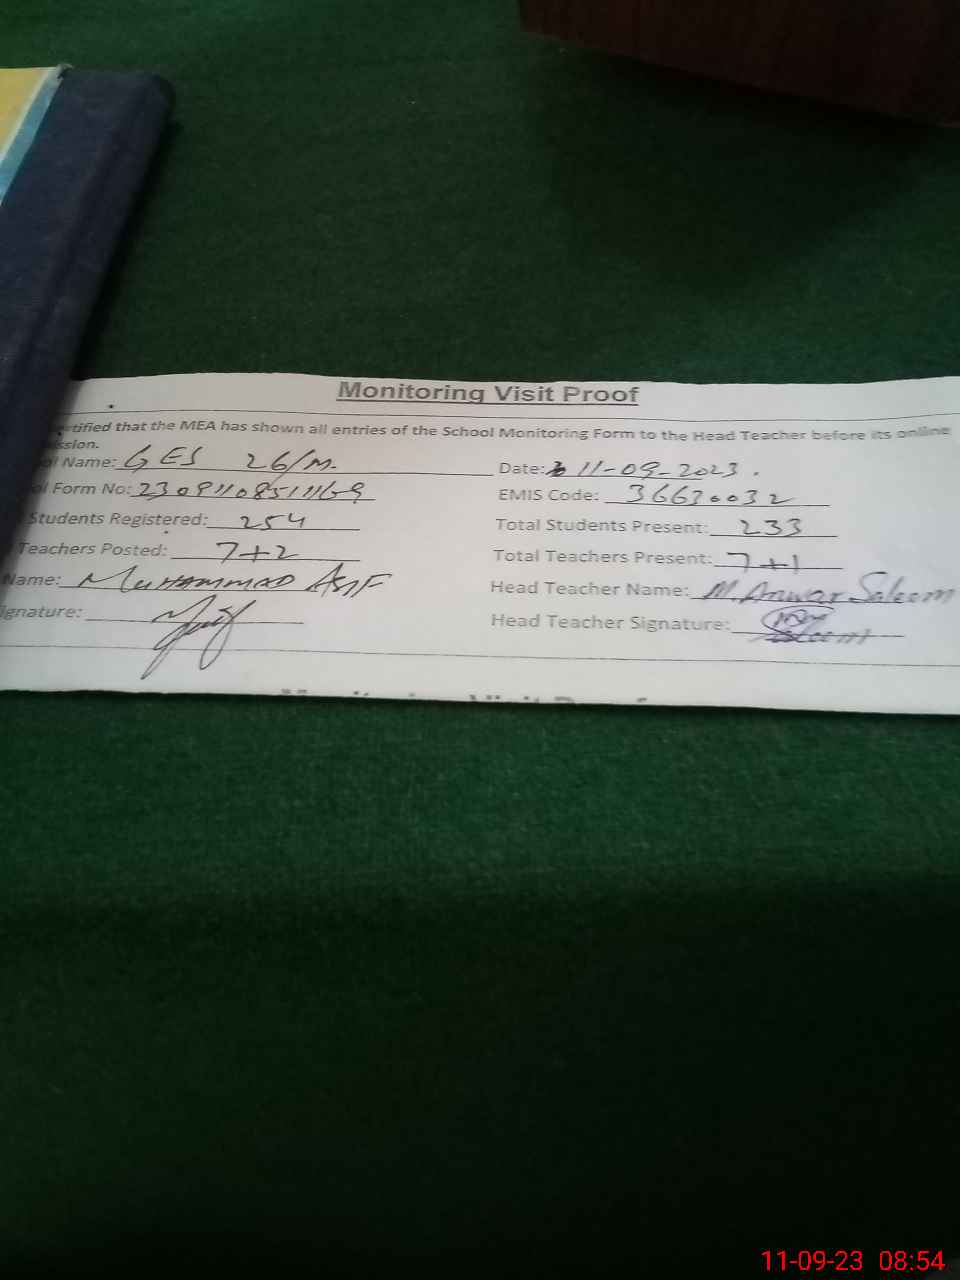 Monitoring Visit Proof
ertified that the MEA has shown all entries of the School Monitoring Form to the Head Teacher before its online
ssion.
ol Name: GES 26/M. Date: 11-09-2023.
ol Form No: EMIS Code: 36630032
Students Registered: 254 Total Students Present: 233
Teachers Posted: 7+2 Total Teachers Present: 7+1
Name: MUHAMMAD ASIF Head Teacher Name: M. Anwar Saleem
ignature: Head Teacher Signature:
11-09-23 08:54